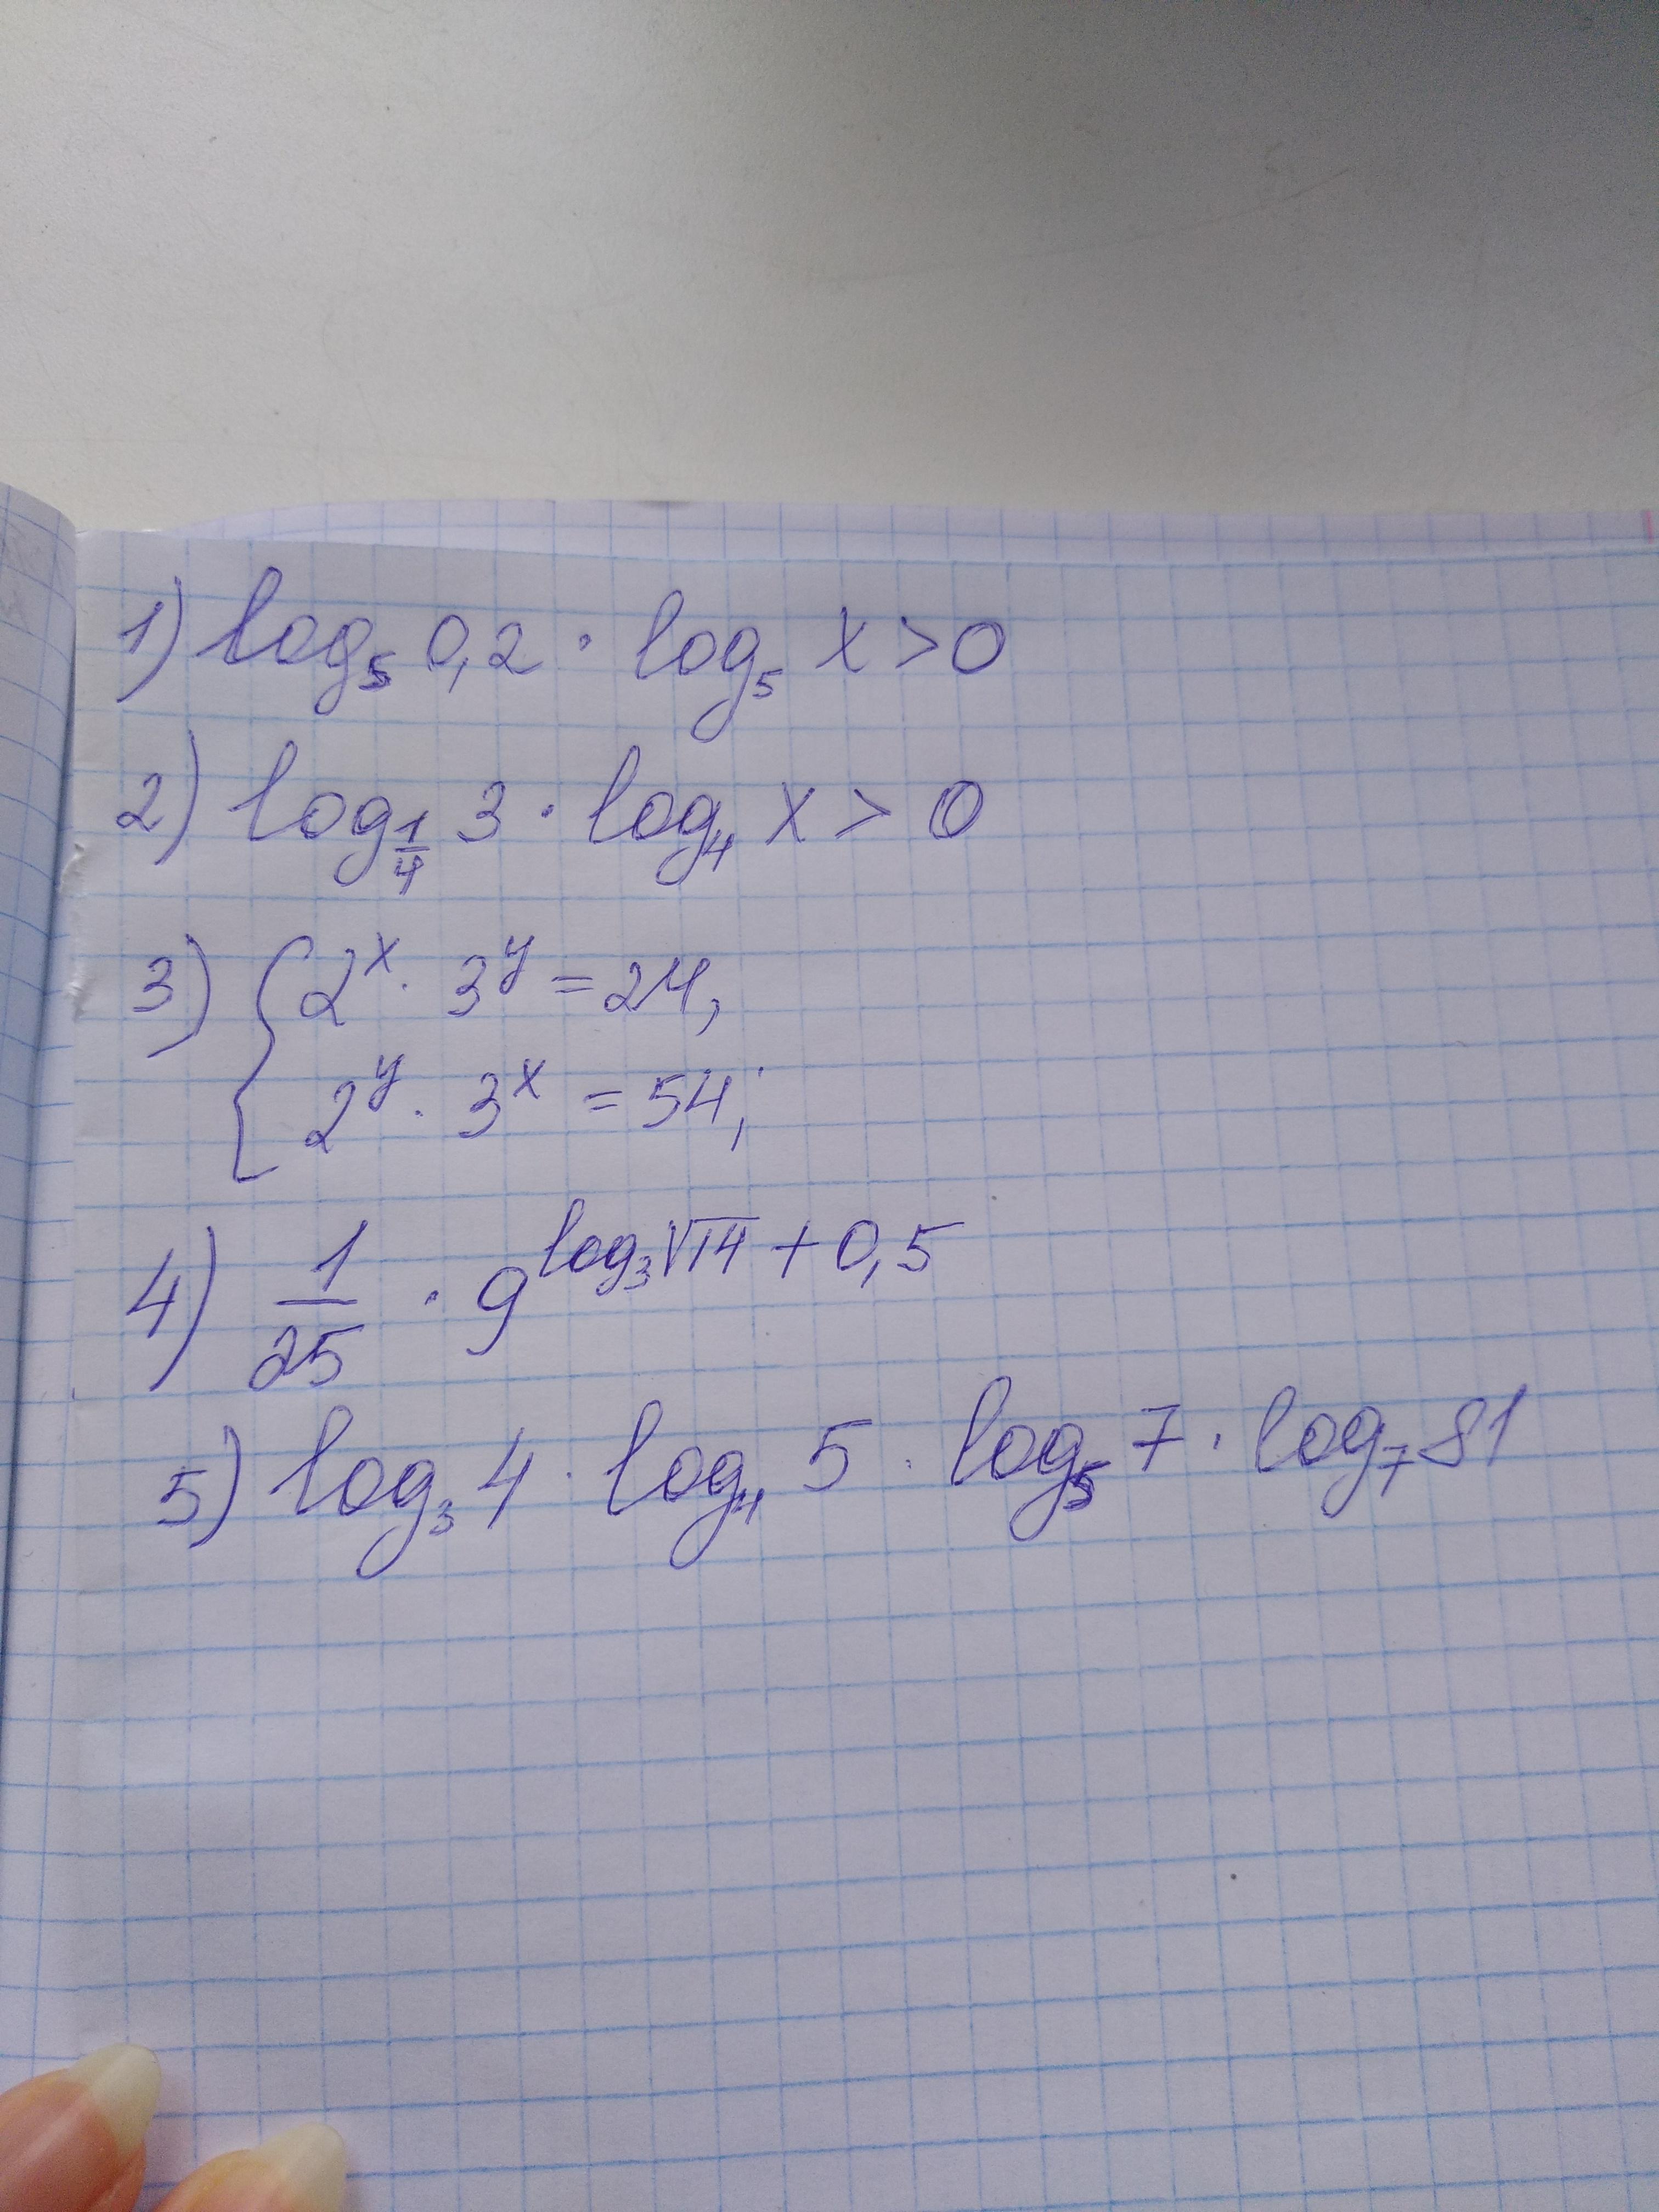 1) log₅ 0,2 · log₅ x > 0
2) log_{1/4} 3 · log₄ x > 0
3) { 2^x · 3^y = 24,
2^y · 3^x = 54;
4) 1/25 · 9^{log₃√14 + 0,5}
5) log₃ 4 · log₄ 5 · log₅ 7 · log₇ 81